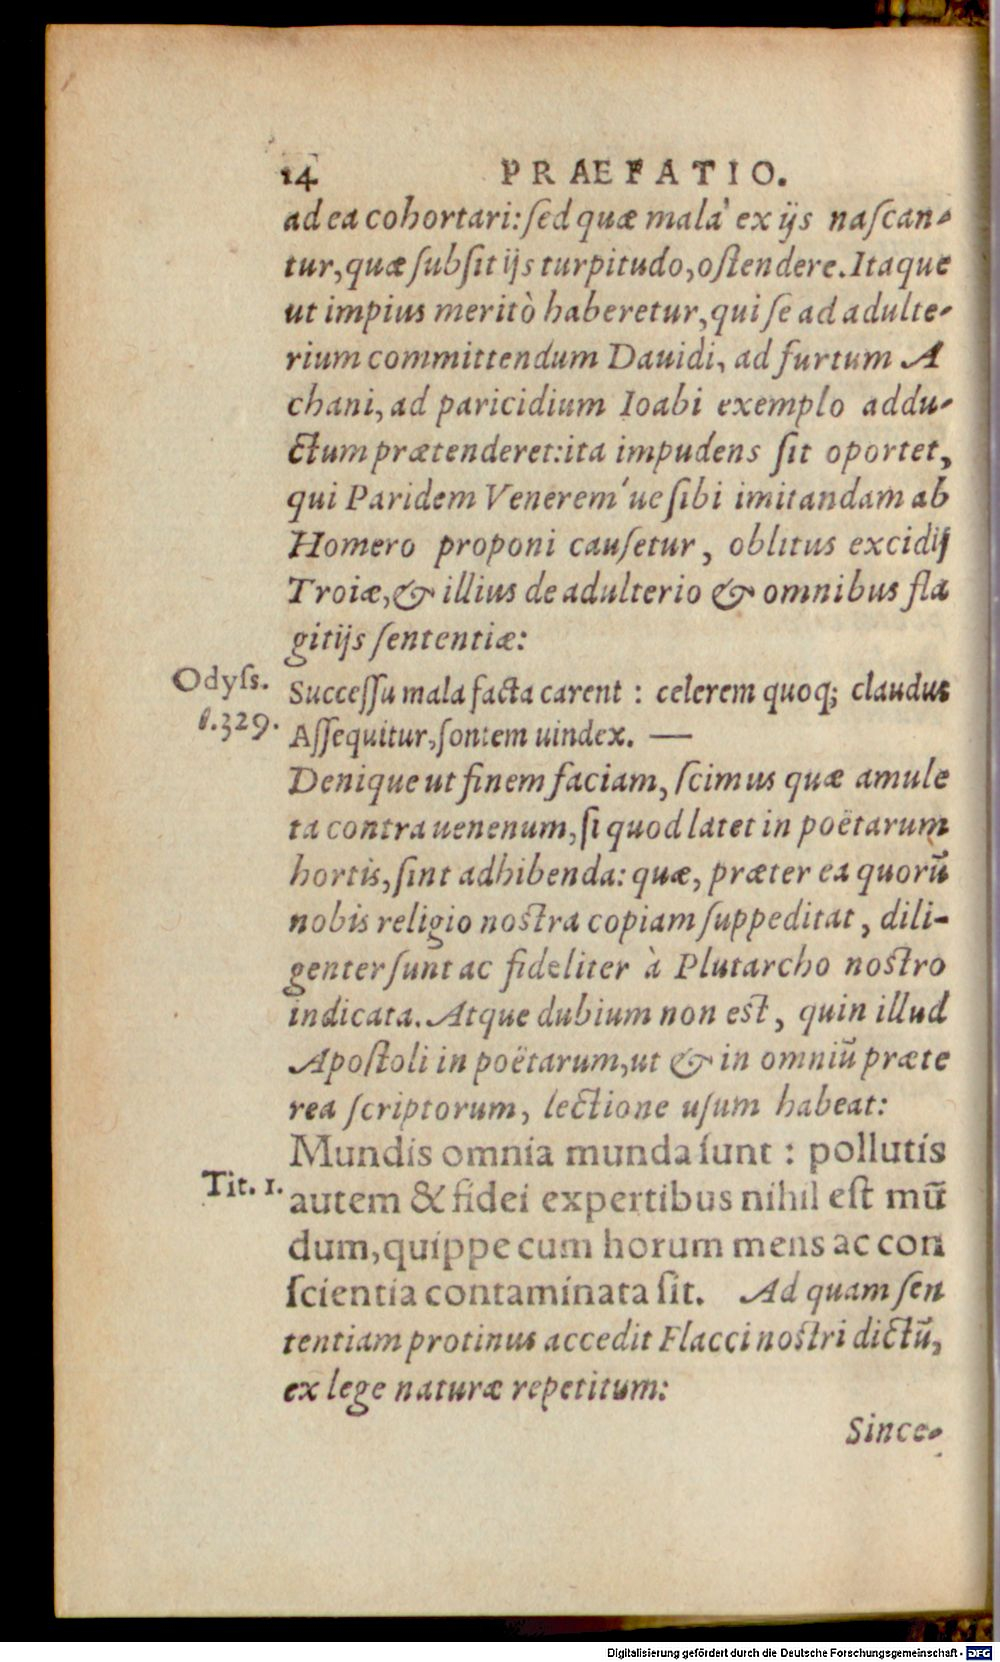 14 PRAEFATIO.
ad ea cohortari: ſed quæ mala ex ijs naſcan-
tur, quæ ſubſit ijs turpitudo, oſtendere. Itaque
ut impius meritò haberetur, qui ſe ad adulte-
rium committendum Dauidi, ad furtum A
chani, ad paricidium Ioabi exemplo addu-
ctum prætenderet: ita impudens ſit oportet,
qui Paridem Venerem´ue ſibi imitandam ab
Homero proponi cauſetur, oblitus excidij
Troiæ, & illius de adulterio & omnibus fla
gitijs ſententiæ:
Odyſs. θ.329.
Succeſſu mala facta carent : celerem quoq; claudus
Aſſequitur, ſontem uindex. —
Denique ut finem faciam, ſcimus quæ amule
ta contra uenenum, ſi quod latet in poëtarum
hortis, ſint adhibenda: quæ, præter ea quorũ
nobis religio noſtra copiam ſuppeditat, dili-
genter ſunt ac fideliter à Plutarcho noſtro
indicata. Atque dubium non eſt, quin illud
Apoſtoli in poëtarum, ut & in omniũ præte
rea ſcriptorum, lectione uſum habeat:
Mundis omnia munda ſunt : pollutis
Tit. 1.
autem & fidei expertibus nihil eſt mũ
dum, quippe cum horum mens ac con
ſcientia contaminata ſit. Ad quam ſen
tentiam protinus accedit Flacci noſtri dictũ,
ex lege naturæ repetitum:
Since-
Digitalisierung gefördert durch die Deutsche Forschungsgemeinschaft - DFG